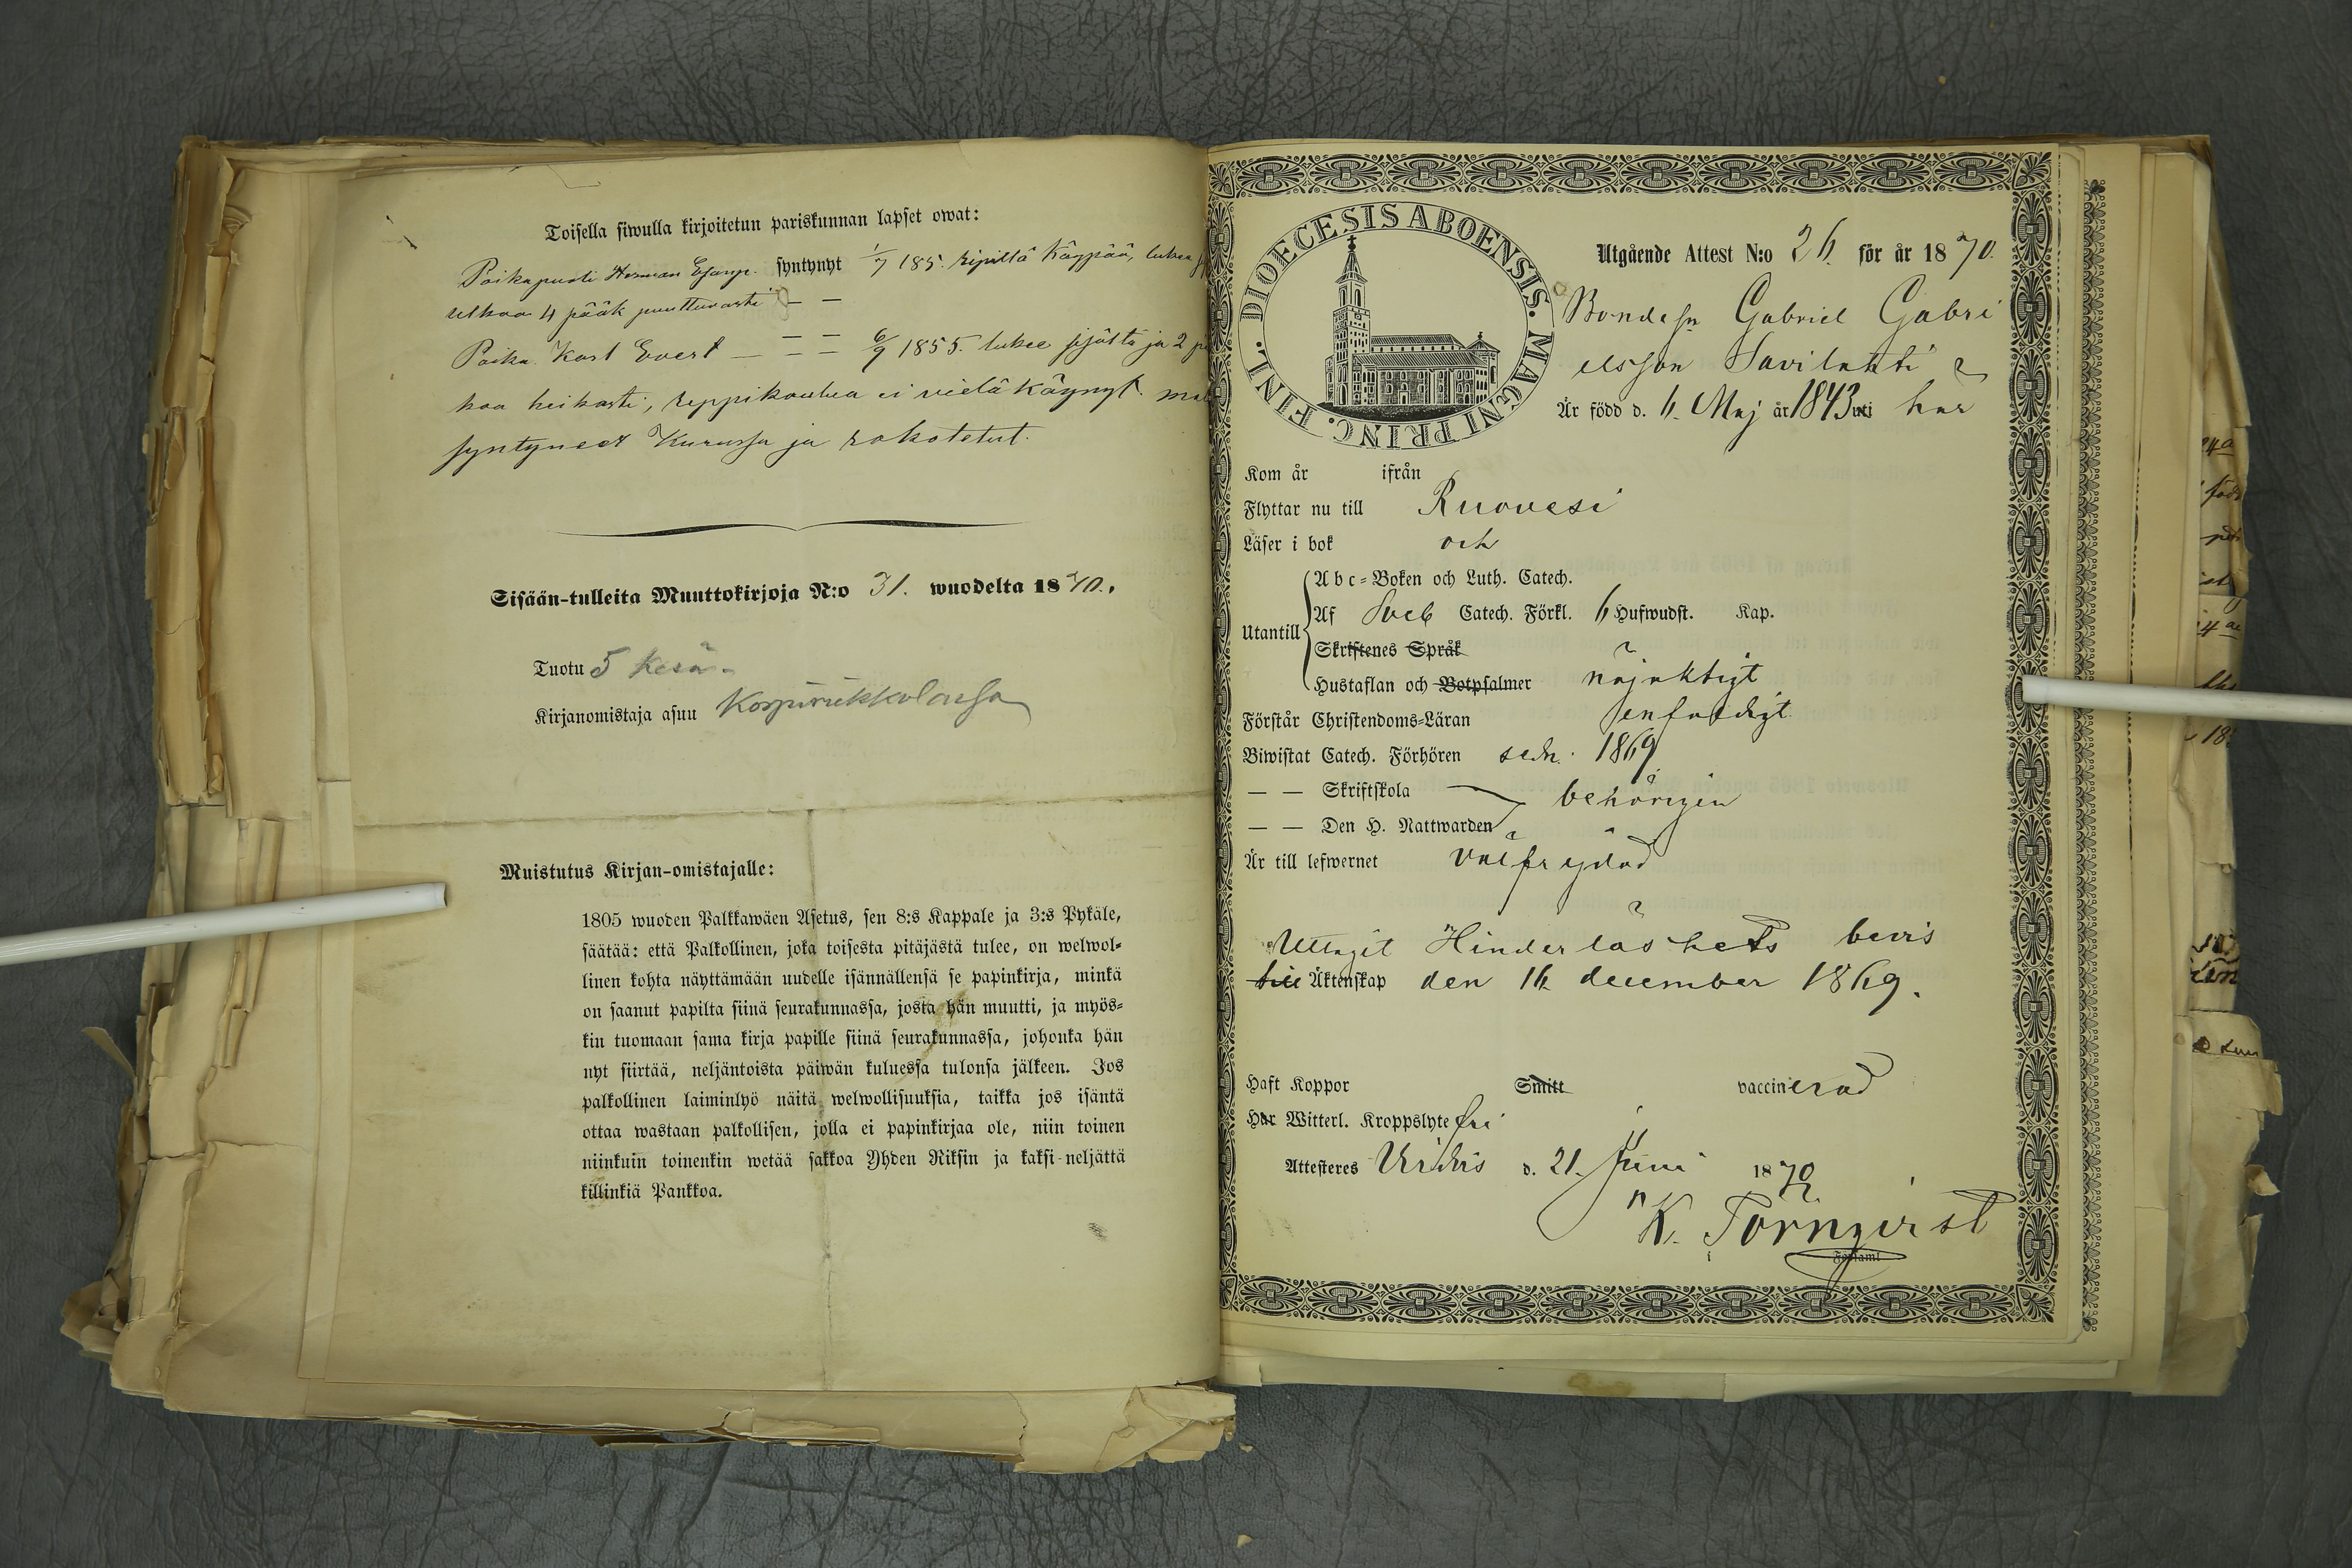 Toisella siwulla kirjoitetun pariskunnan lapset owat:
Poikapuoli Herman syntynyt 1/7 185. ripillä käypää, lukee
ulkoa 4 pääk puuttuvasti — —
Poika Karl Evert — — — 6/9 1855. lukee sisältä ja 2
koa heikosti, rippikoulua ei vielä käynyt.
syntyneet Kurussa ja rokotetut.
Sisään-tulleita Muuttokirjoja N:o 31. wuodelta 1870.
Tuotu 5 Kesä.
Kirjanomistaja asuu
Muistutus Kirjan-omistajalle:
1805 wuoden Palkkawäen Asetus, sen 8:s Kappale ja 3:s Pykäle,
säätää: että Palkollinen, joka toisesta pitäjästä tulee, on welwol-
linen kohta näyttämään uudelle isännällensä se papinkirja, minkä
on saanut papilta siinä seurakunnassa, josta hän muutti, ja myös-
kin tuomaan sama kirja papille siinä seurakunnassa, johonka hän
nyt siirtää, neljäntoista päiwän kuluessa tulonsa jälkeen. Jos
palkollinen laiminlyö näitä welwollisuuksia, taikka jos isäntä
ottaa wastaan palkollisen, jolla ei papinkirjaa ole, niin toinen
niinkuin toinenkin wetää sakkoa Yhden Riksin ja kaksi-neljättä
killinkiä Pankkoa.
DIOECESIS ABOENSIS. MAGNI PRINC. FINL.
Utgående Attest N:o 26 för år 1870.
Bondesn Gabriel Gabri
elsson Savilahti
Är född d. 6 Maj år 1843 uti här
Kom år ifrån
Flyttar nu till Ruovesi
Läser i bok och
Utantill
Abc-Boken och Luth. Catech.
Af Sveb Catech. Förkl. 6 Hufwudst. Kap.
Skriftenes Språk
Hustaflan och Botpsalmer nöjaktigt
Förstår Christendoms-Läran enfaldigt
Biwistat Catech. Förhören sedn. 1869
— — Skriftskola
behörigen
— — Den H. Nattwarden
Är till lefwernet välfrejdad
Uttagit Hinderlöshets bevis
till Äktenskap den 16 december 1869.
Haft Koppor Smitt vaccinerad
Har Witterl. Kroppslyte fri
Attesteres Virdois d. 21 Juni 1870
K. Törnqvist